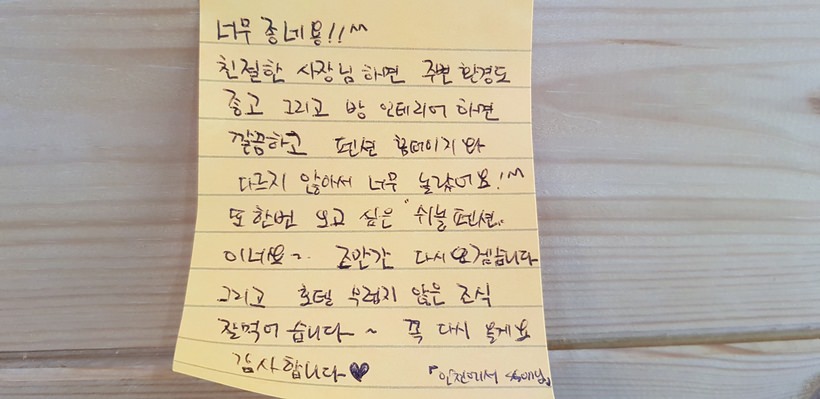 너무 좋네용!! ^^
친절한 사장님 하면 주변 환경도
좋고 그리고 방 인테리어 하면
깔끔하고 펜션 홈페이지와
다르지 않아서 너무 놀랐어요! ^^
또 한번 오고 싶은 "쉬눌 펜션"
이네요~. 조만간 다시 오겠습니다
그리고 호텔 부럽지 않은 조식
잘먹어 습니다~ 꼭 다시 올게요
감사합니다♥ 『인천에서 sony』